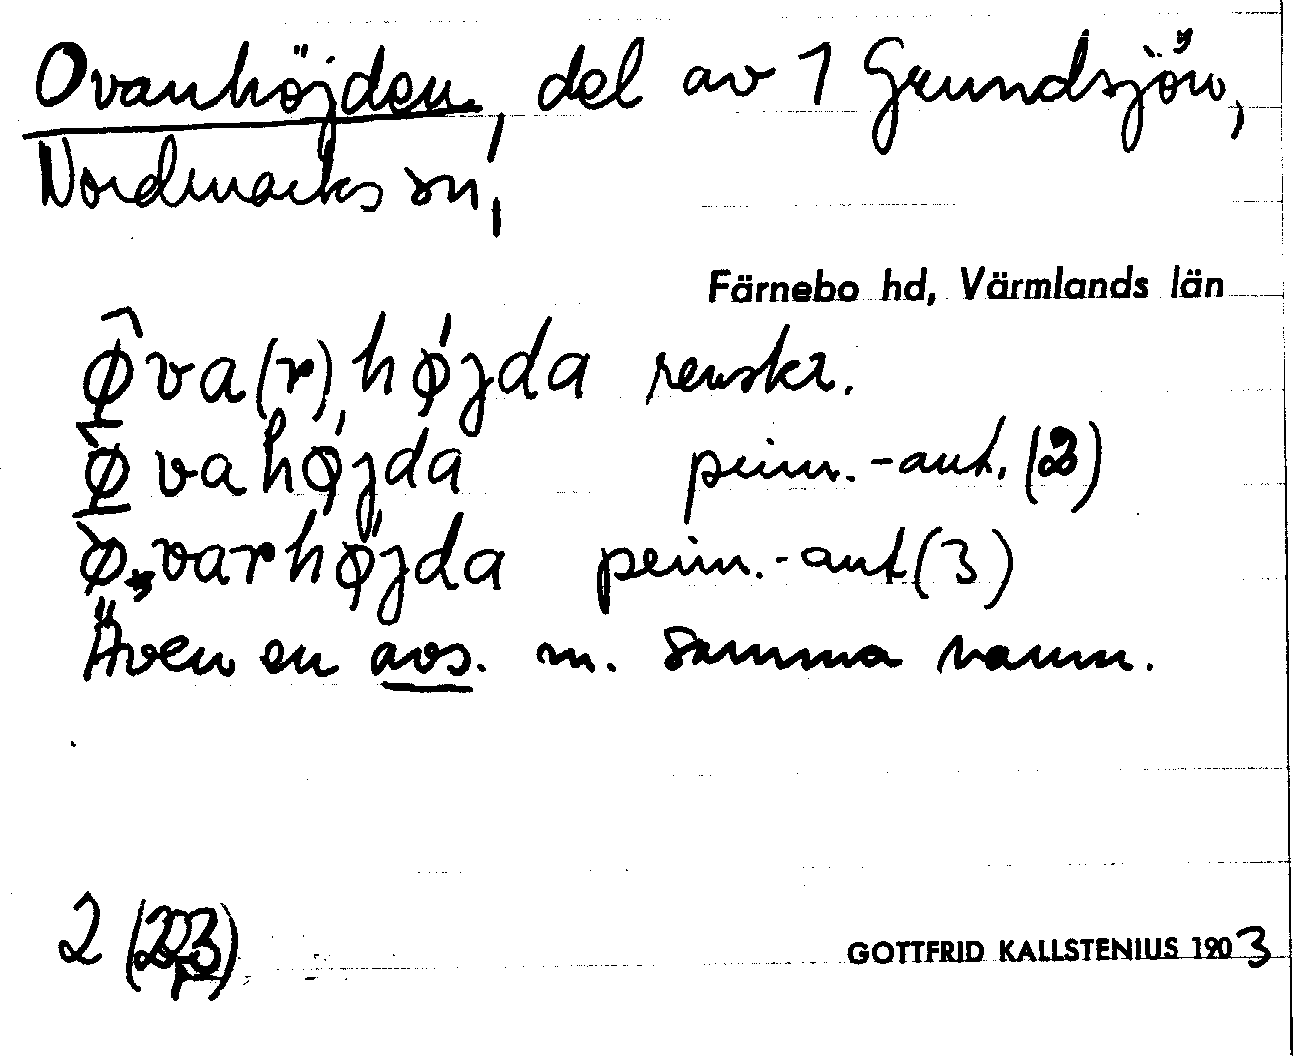 Ovanhöjden, del av 1 Grundsjön,
Nordmarks sn,
Färnebo hd, Värmlands län
øva(r)højda renskr.
øvahøjda prim.-ant. (2)
øvarhøjda prim.-ant (3)
Även en avs. m. samma namn.
2 (2,3)
GOTTFRID KALLSTENIUS 1903